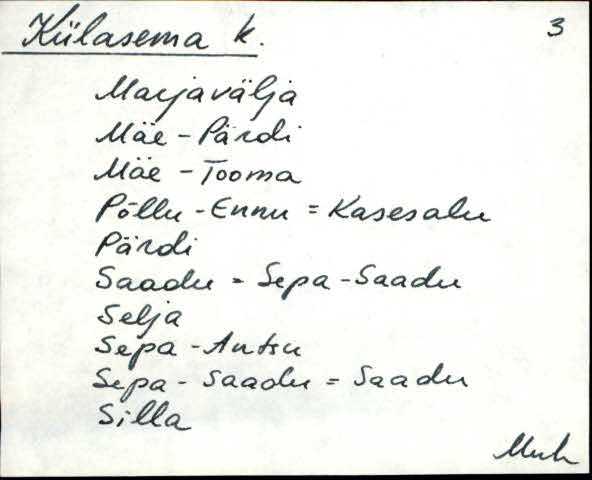 Külasema k.
3
Marjavälja
Mäe - Pärdi
Mäe - Tooma
Põllu - Ennu = Kasesalu
Pärdi
Saadu = Sepa - Saadu
Selja
Sepa - Antsu
Sepa - Saadu = Saadu
Silla
Muh